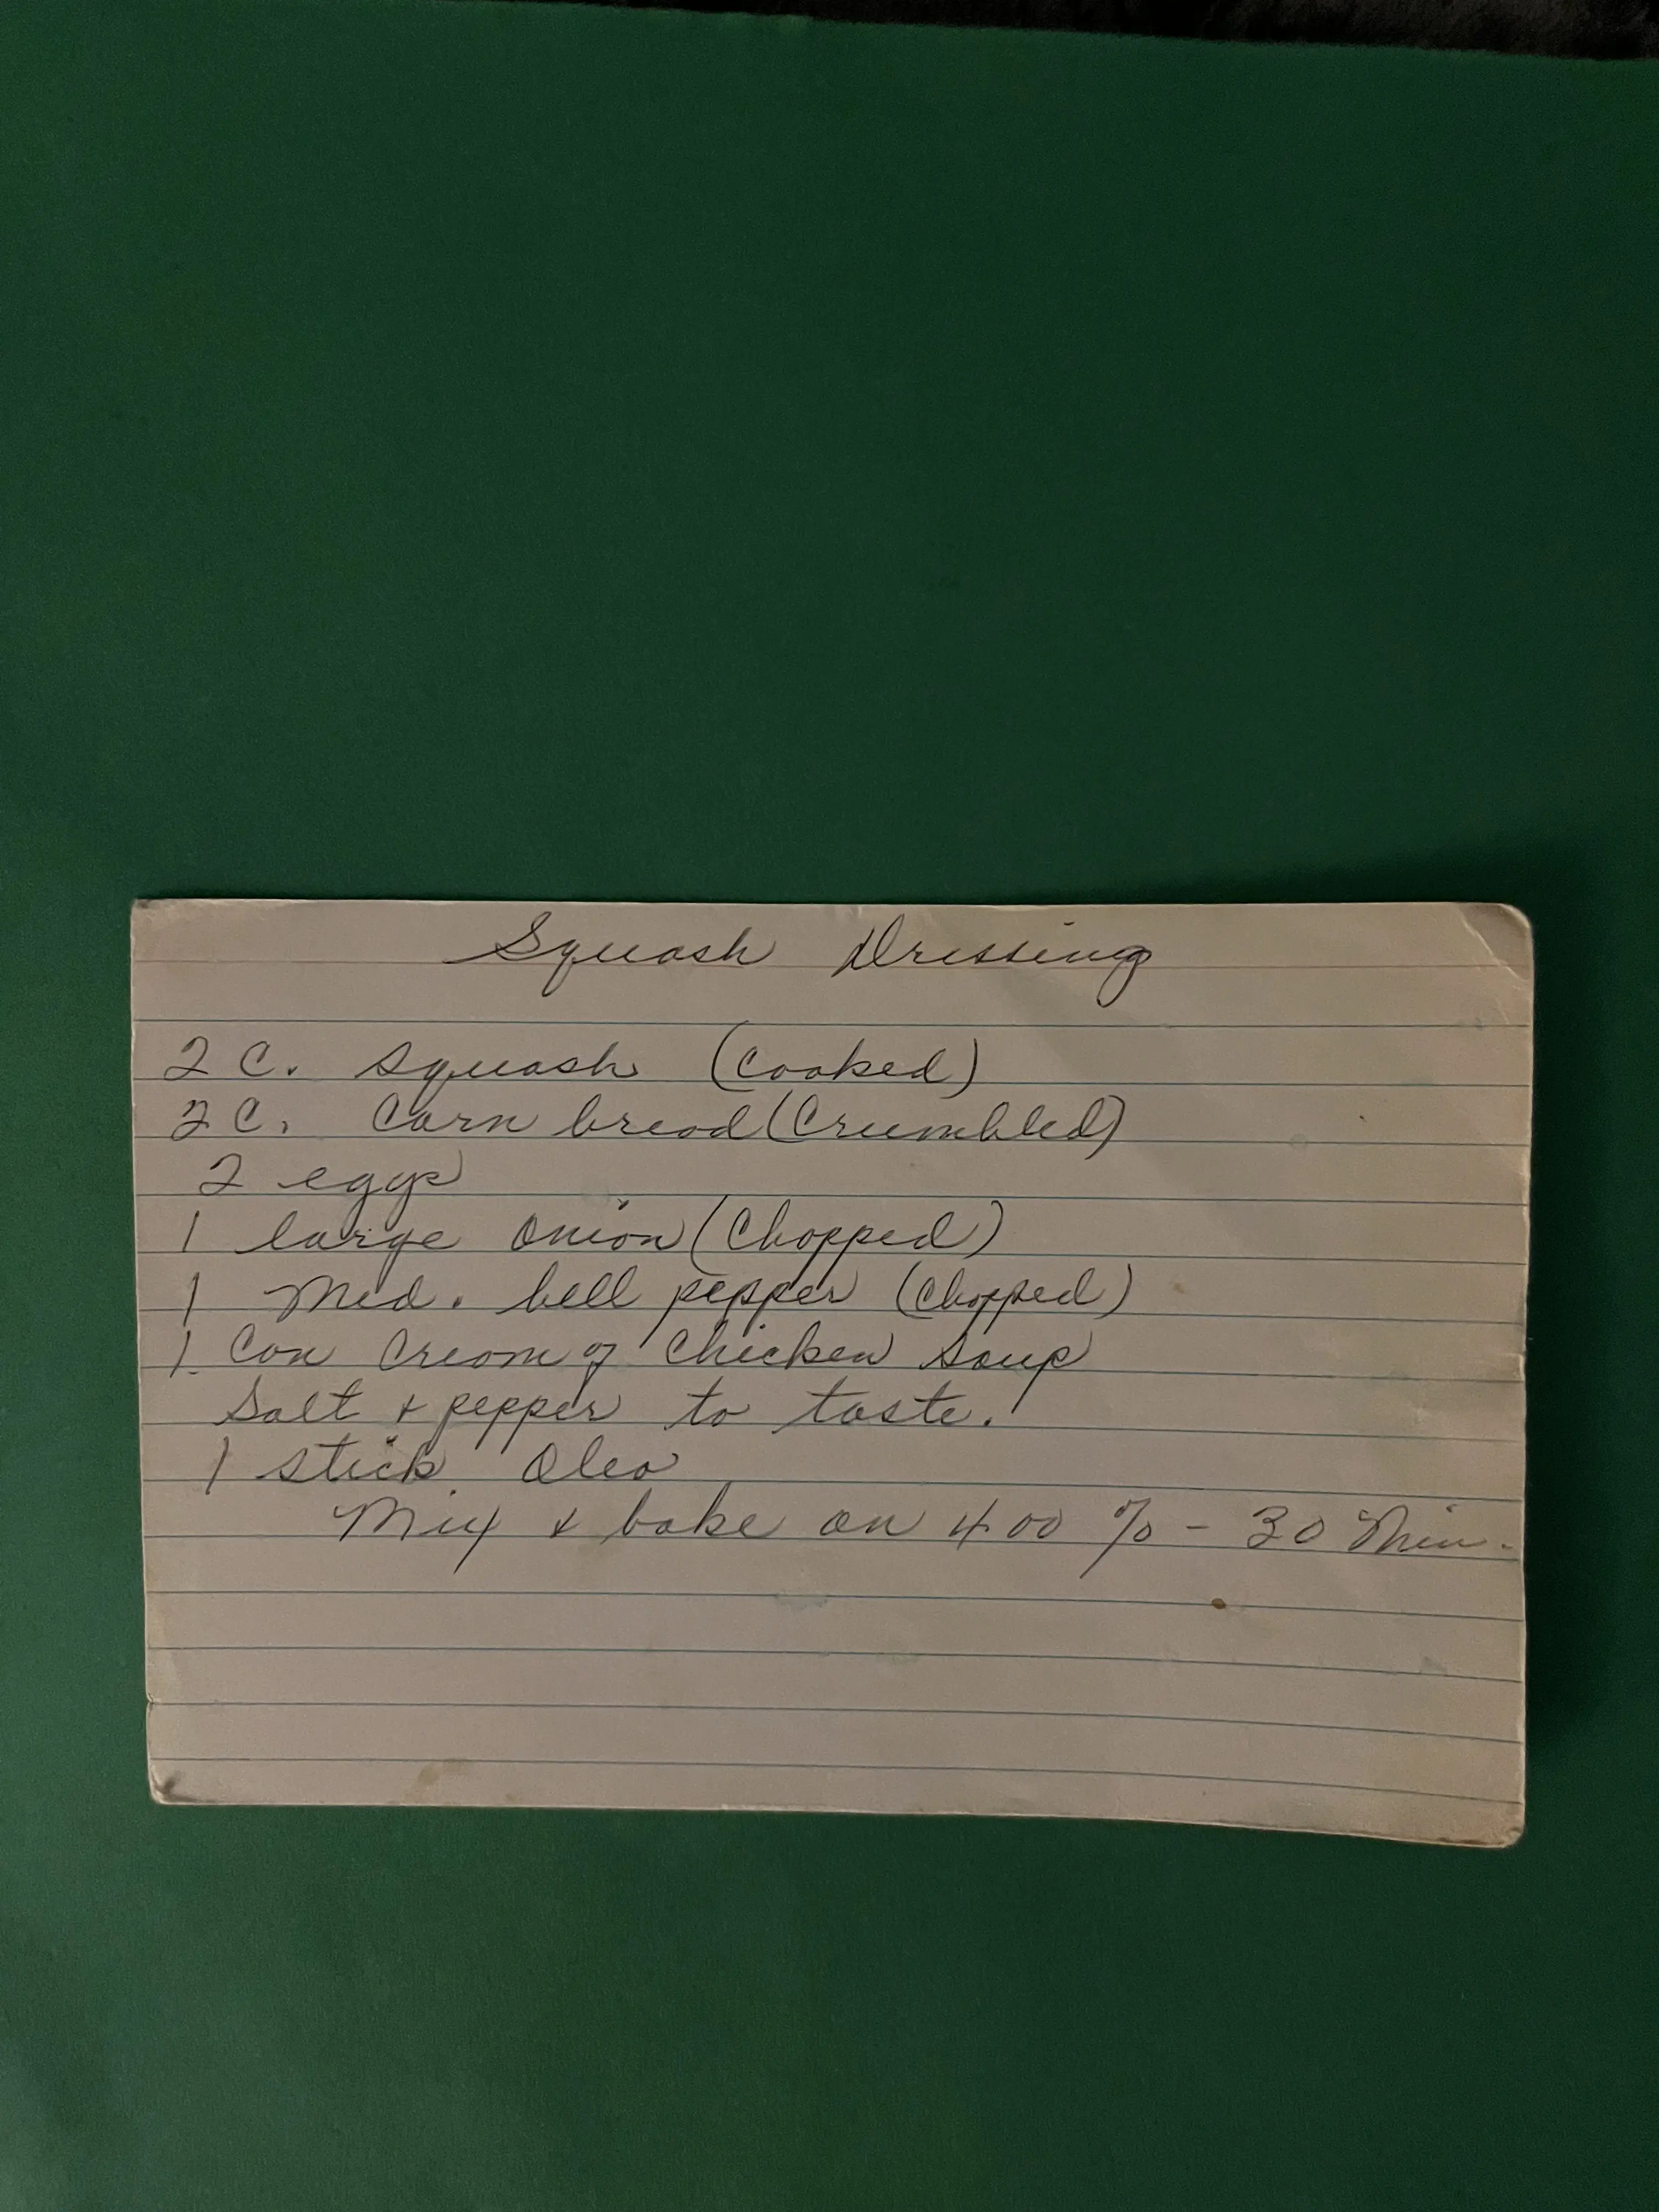 Squash Dressing
2 C. Squash (Cooked)
2 C. Corn bread (Crumbled)
2 eggs
1 large onion (Chopped)
1 Med. bell pepper (Chopped)
1 Can Cream of Chicken Soup
Salt & pepper to taste.
1 stick Oleo
Mix & bake on 400 % - 30 Min.